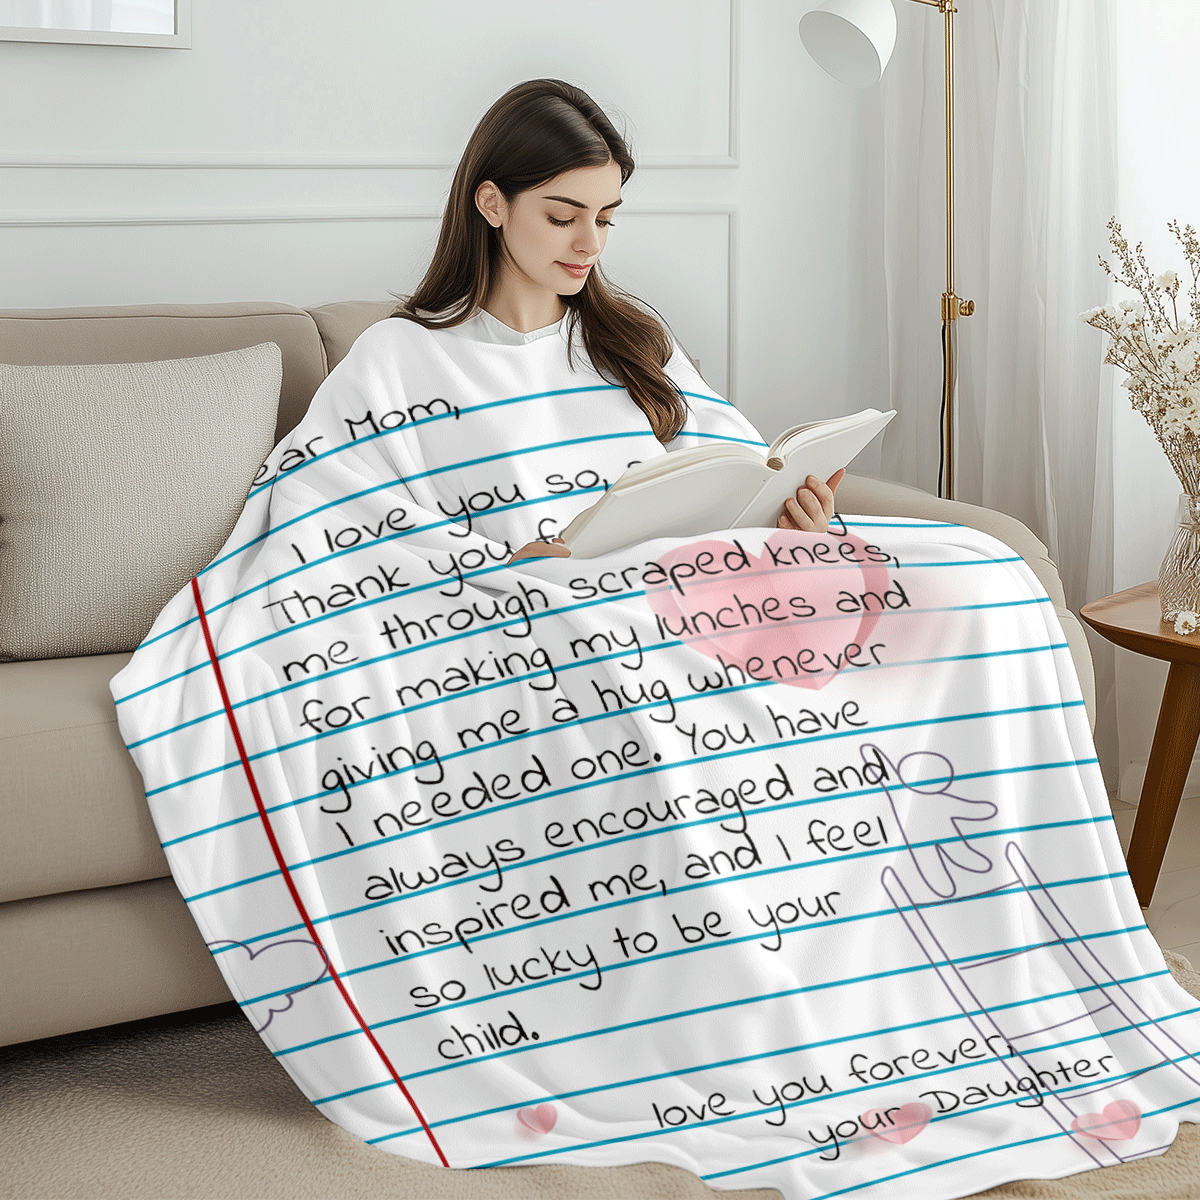 ear Mom,
I love you so,
Thank you
me through scraped knees,
for making my lunches and
giving me a hug whenever
I needed one. You have
always encouraged and
inspired me, and I feel
so lucky to be your
child.
love you forever,
your Daughter